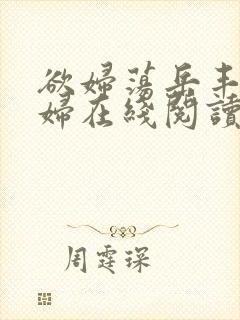 欲婦蕩岳丰
婦在綫閱讀
周霆琛